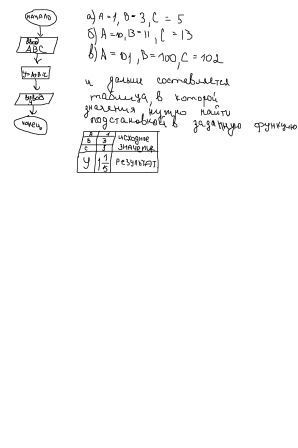 начало
Ввод
ABC
вывод
конец
а) A = 1, B = 3, C = 5
б) A = 10, B = 11, C = 13
в) A = 101, B = 100, C = 102
и дальше составляется
таблица, в которой
значения нужно найти
подстановкой в заданную функцию
B 3 исходное
C 5 значение
У 1 1/5 результат